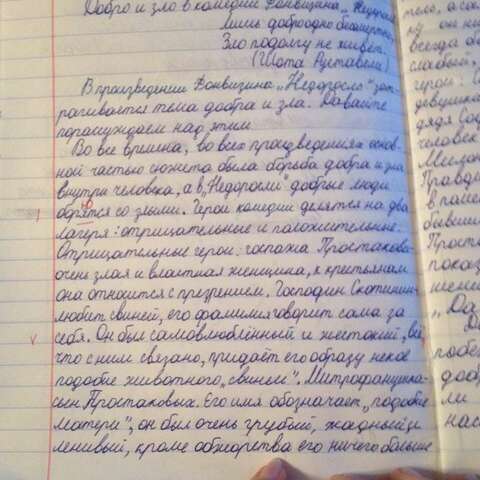 Добро и зло в комедии Фонвизина „Недоросль"
Лишь добро одно бессмертно,
Зло подолгу не живёт.
(Шота Руставели)
В произведении Фонвизина „Недоросль" зат-
рагивается тема добра и зла. Давайте
порассуждаем над этим.
Во все времена, во всех произведениях основ-
ной частью сюжета была борьба добра и зла
внутри человека, а в „Недоросли" добрые люди
борятся со злыми. Герои комедии делятся на два
лагеря: отрицательные и положительные.
Отрицательные герои: госпажа Простакова-
очень злая и властная женщина, к крестьянам
она относится с презрением. Господин Скотинин-
любит свиней, его фамилия говорит сама за
себя. Он был самовлюблённый и жестокий, всё,
что с ним связано, придаёт его образу некое
подобие животного, „свиньи". Митрофанушка-
сын Простаковых. Его имя обозначает „подобие
матери", он был очень грубый, жадный и
ленивый, кроме обжорства его ничего больше
теле, а
ну он
всегда
слабый,
герои:
девушка
дядя
человек
Правди
в
бывши
Проста
показ
жени
„Да
добр
ли
нас